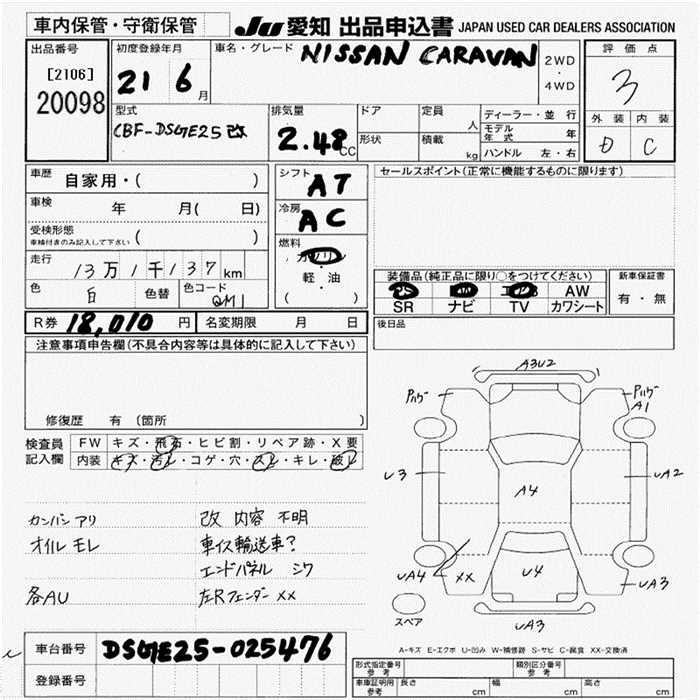 車内保管・守衛保管 JU 愛知 出品申込書 JAPAN USED CAR DEALERS ASSOCIATION
出品番号 初度登録年月 車名・グレード NISSAN CARAVAN 2WD・4WD 評価点
[2106] 21 6 月 3
20098
型式 排気量 ドア 定員 人 ディーラー・並行 外装 内装
CBF-DSGE25改 2.48 CC 形状 積載 kg モデル年式 年 D C
ハンドル 左・右
車歴 自家用・( ) シフト AT セールスポイント(正常に機能するものに限ります)
車検 年 月( 日) 冷房 AC
受検形態 ( )
車検付きのみ記入して下さい
燃料 ガソリン
走行 13万1千137km 軽・油 装備品(純正品に限り○をつけてください) 新車保証書
色 白 色替 色コード QM1 ( ) PS PW エアB AW 有・無
SR ナビ TV カワシート
R券 18,010 円 名変期限 月 日 後日品
注意事項申告欄(不具合内容等は具体的に記入して下さい)
修復歴 有 (箇所 )
検査員 FW キズ・飛石・ヒビ割・リペア跡・X要
記入欄 内装 キズ・汚レ・コゲ・穴・スレ・キレ・破レ
A3U2
A1
U3 A4 UA2
UA4 XX U4 UA3
UA3
スペア
カンバン アリ 改 内容 不明
オイル モレ 車イス輸送車?
エンドパネル シワ
各AU 左Rフェンダー XX
A-キズ E-エクボ U-凹み W-補修跡 S-サビ C-腐食 XX-交換済
車台番号 DSGE25-025476
登録番号
形式指定番号 参考 類別区分番号 参考
車庫証明用 参考 長さ cm 幅 cm 高さ cm